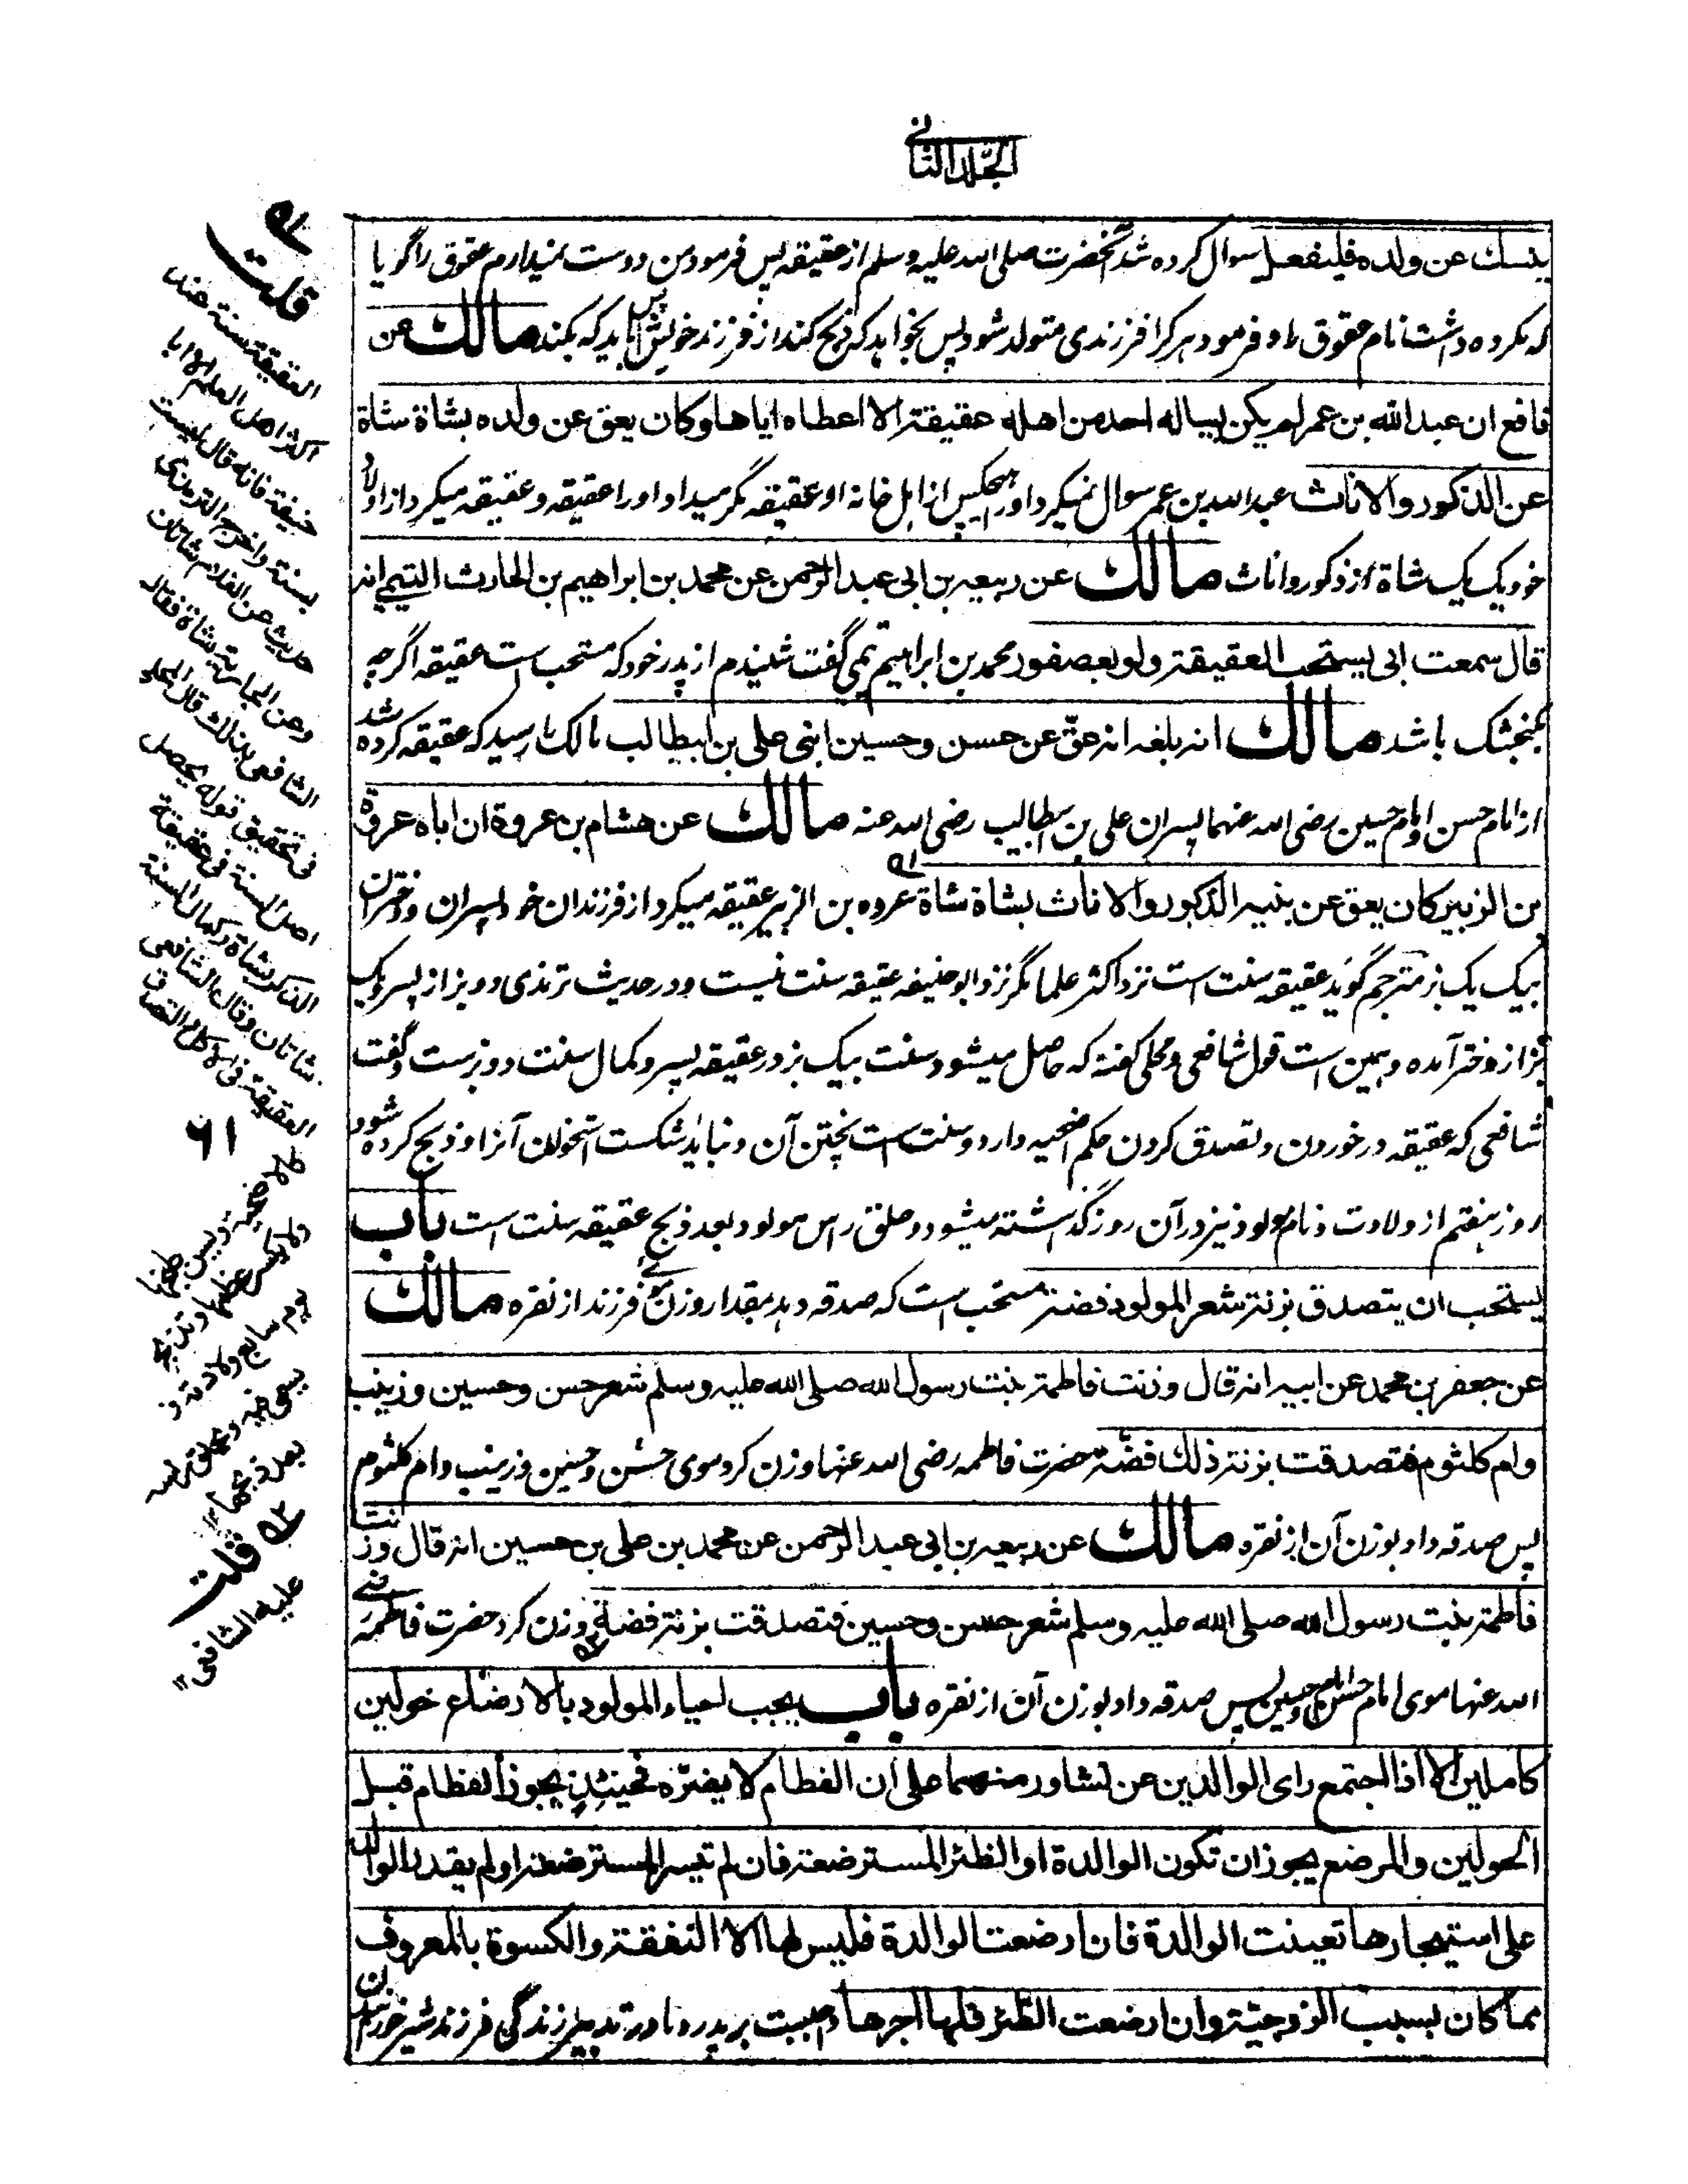 المجلد الثانی
ینسك عن ولده فلیفعل سوال کرده شد آنحضرت صلی الله علیه وسلم از عقیقه پس فرمود من دوست نمیدارم عقوق را گویا
که مکروه داشت نام عقوق را و فرمود هر کرا فرزندی متولد شود پس بخواهد که ذبح کند از فرزند خویش پس باید که بکند مالك عن
نافع ان عبد الله بن عمر لم یکن یساله احد من اهله عقیقة الا اعطاه ایاها وکان یعق عن ولده بشاة شاة
عن الذکور والاناث عبد الله بن عمر سوال نمیکرد او را هیچکس از اهل خانه او عقیقه مگر میداد او را عقیقه و عقیقه میکرد از اولاد
خود یک یک شاة از ذکور واناث مالك عن ربیعه بن ابی عبد الرحمن عن محمد بن ابراهیم بن الحارث التیمی انه
قال سمعت ابی یستحب العقیقة ولو بعصفور محمد بن ابراهیم تمی گفت شنیدم از پدر خود که مستحب است عقیقه اگرچه
بکنجشک باشد مالك انه بلغه انه عق عن حسن وحسین ابنی علی بن ابیطالب مالک را رسید که عقیقه کرده شد
از امام حسن و امام حسین رضی الله عنهما پسران علی بن ابیطالب رضی الله عنه مالك عن هشام بن عروة ان اباه عروة
بن الزبیر کان یعق عن بنیه الذکور والاناث بشاة شاة عروه بن الزبیر عقیقه میکرد از فرزندان خود پسران و دختران
بیک یک بز مترجم گوید عقیقه سنت است نزد اکثر علما مگر نزد ابو حنیفه عقیقه سنت نیست و در حدیث ترمذی دو بز از پسر ویک
بز از دختر آمده و همین است قول شافعی و محلی گفته که حاصل میشود سنت بیک بز در عقیقه پسر و کمال سنت دو بزست و گفت
شافعی که عقیقه در خوردن و تصدق کردن حکم اضحیه دارد و سنت است پختن آن و نباید شکست استخوان آنرا و ذبح کرده شود
روز هفتم از ولادت و نام مولود نیز در آن روز گذاشته میشود و حلق راس مولود بعد ذبح عقیقه سنت است باب
یستحب ان یتصدق بزنة شعر المولود فضة مستحب است که صدقه دهد مقدار وزن موی فرزند از نقره مالك
عن جعفر بن محمد عن ابیه انه قال وزنت فاطمة بنت رسول الله صلی الله علیه وسلم شعر حسن وحسین وزینب
وام کلثوم فتصدقت بزنة ذلك فضة حضرت فاطمه رضی الله عنها وزن کرد موی حسن و حسین و زینب و ام کلثوم
پس صدقه داد بوزن آن از نقره مالك عن ربیعه بن ابی عبد الرحمن عن محمد بن علی بن حسین انه قال وزنت
فاطمة بنت رسول الله صلی الله علیه وسلم شعر حسن وحسین فتصدقت بزنة فضة وزن کرد حضرت فاطمه رضی
الله عنها موی امام حسن و امام حسین پس صدقه داد بوزن آن از نقره باب یجب احیاء المولود بالارضاع حولین
کاملین الا اذا اجتمع رای الوالدین عن تشاور منهما علی ان الفطام لا یضره فحینئذ یجوز الفطام قبل
الحولین والمرضع یجوز ان تکون الوالدة او الظئر المسترضعة فان لم تیسر المسترضعة او لم یقدر الوالد
علی استیجارها تعینت الوالدة فان ارضعت الوالدة فلیس لها الا النفقة والکسوة بالمعروف
مما کان بسبب الزوجیة وان ارضعت الظئر فلها اجرها واجبست بر پدر و مادر تدبیر زندگی فرزند شیر خورانیدن
۹۱
قلت
العقیقة سنة عند
اکثر اهل العلم الا ابا
حنیفة فانه قال لیست
بسنة واخرج الترمذی
حدیث عن الغلام شاتان
وعن الجاریة شاة فقال
الشافعی بذلك قال المحلی
فی تحقیق قوله یحصل
اصل السنة فی عقیقة
الذکر بشاة وکمال السنة
شاتان وقال الشافعی
العقیقة فی الاکل والتصدق
۹۱
کالاضحیة ویسن طبخها
ولا یکسر عظمها وتذبح
یوم سابع ولادته و
یسمی فیه ویحلق راسه
بعد ذبحها
۹۲
قلت
علیه الشافعی ۱۲